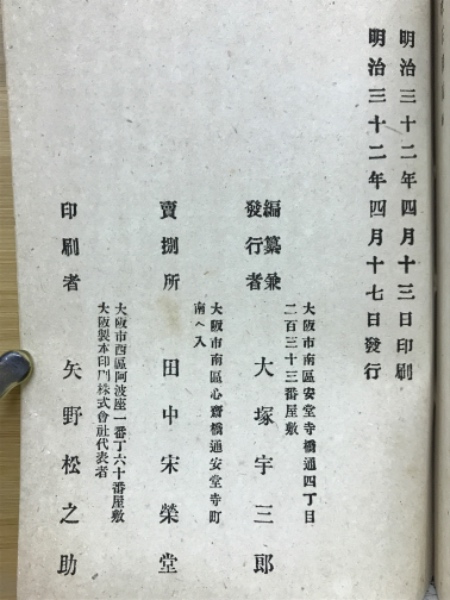 明治三十二年四月十三日印刷
明治三十二年四月十七日發行
大阪市南區安堂寺橋通四丁目
二百三十三番屋敷
編纂兼
發行者
大塚宇三郎
大阪市南區心齋橋通安堂寺町
南へ入
賣捌所
田中宋榮堂
大阪市西區阿波座一番丁六十番屋敷
大阪製本印刷株式會社代表者
印刷者
矢野松之助